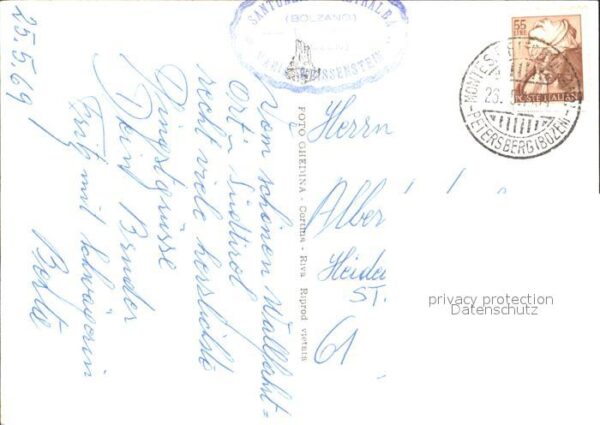 25.5.69
Vom schönen Wallfahrt=
ort in Südtirol
recht viele herzliche
Pfingstgrüsse
Dein Bruder
Fritz mit Schwägerin
Berta
SANTUARIO PIETRALBA
(BOLZANO)
(BOZEN)
MARIA WEISSENSTEIN
FOTO GHEDINA - Cortina - Riva Riprod vietata
55
LIRE
POSTE ITALIANE
MONTE S.
26.
PETERSBERG (BOZEN)
Herrn
Alber
Heide
ST.
61
privacy protection
Datenschutz